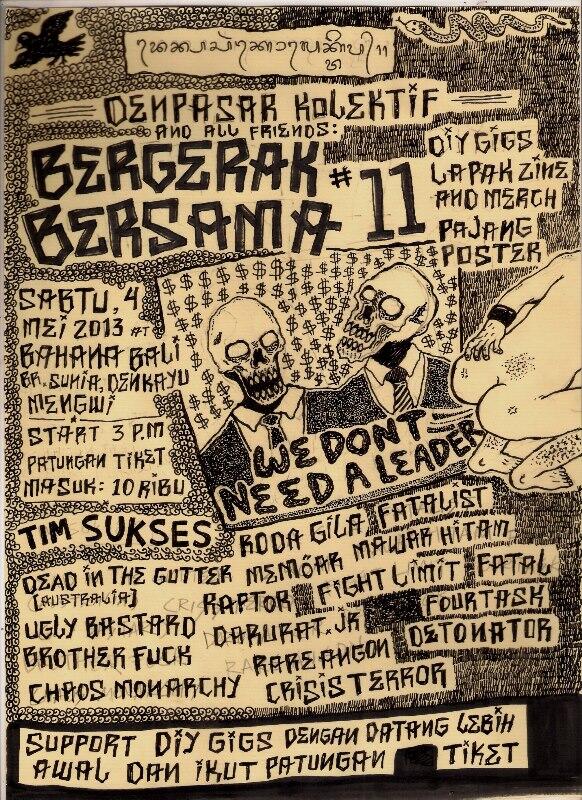 DENPASAR KOLEKTIF
AND ALL FRIENDS:
BERGERAK
BERSAMA #11
DIY GIGS
LAPAK ZINE
AND MERCH
PAJANG
POSTER
SABTU, 4
MEI 2013 AT
BAHANA BALI
BR. SUNIA, DENKAYU
MENGWI
START 3 P.M
PATUNGAN TIKET
MASUK: 10 RIBU
WE DONT
NEED A LEADER
TIM SUKSES
DEAD IN THE GUTTER
[AUSTRALIA]
UGLY BASTARD
BROTHER FUCK
CHAOS MONARCHY
RODA GILA
MEMOAR
RAPTOR
DARURAT.JR
RARE ANGON
CRISIS TERROR
FATALIST
MAWAR HITAM
FIGHT LIMIT
FATAL
FOURTASK
DETONATOR
SUPPORT DIY GIGS DENGAN DATANG LEBIH
AWAL DAN IKUT PATUNGAN TIKET